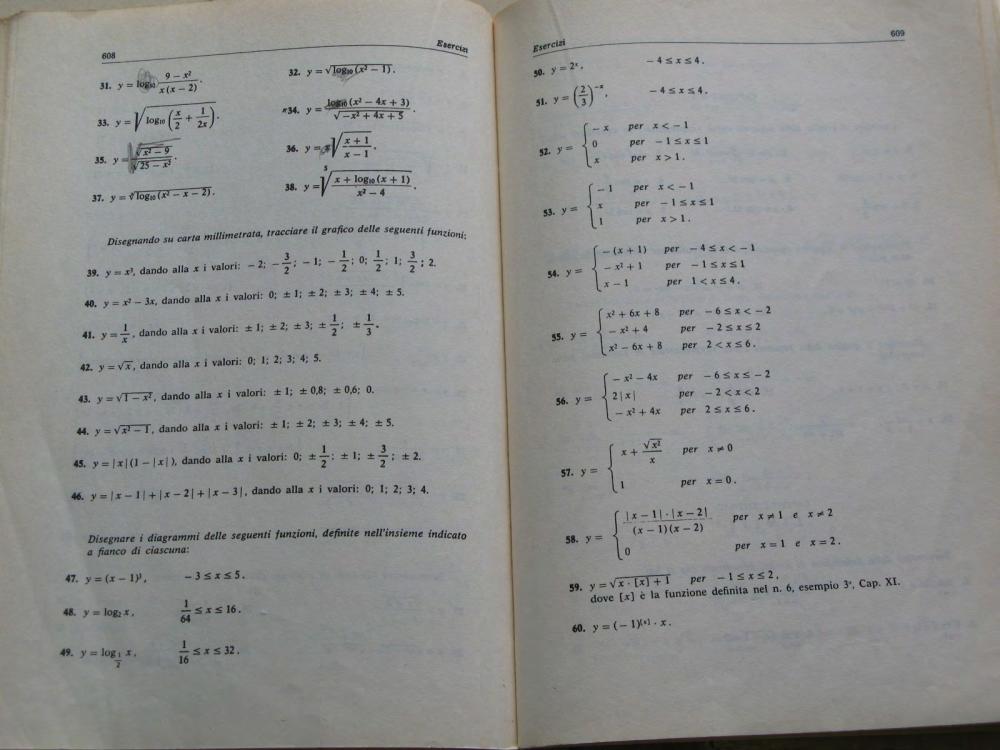 608
Esercizi
31. y = log₁₀ (9 − x²)/(x(x − 2)).
32. y = √(log₁₀ (x² − 1)).
33. y = √(log₁₀ (x/2 + 1/(2x))).
34. y = log₁₀ (x² − 4x + 3)/√(−x² + 4x + 5).
35. y = √(x² − 9)/√(25 − x²).
36. y = √((x + 1)/(x − 1)).
37. y = ∜(log₁₀ (x² − x − 2)).
38. y = ⁵√((x + log₁₀ (x + 1))/(x² − 4)).
Disegnando su carta millimetrata, tracciare il grafico delle seguenti funzioni:
39. y = x³, dando alla x i valori: − 2; − 3/2; − 1; − 1/2; 0; 1/2; 1; 3/2; 2.
40. y = x² − 3x, dando alla x i valori: 0; ± 1; ± 2; ± 3; ± 4; ± 5.
41. y = 1/x, dando alla x i valori: ± 1; ± 2; ± 3; ± 1/2; ± 1/3.
42. y = √x, dando alla x i valori: 0; 1; 2; 3; 4; 5.
43. y = √(1 − x²), dando alla x i valori: ± 1; ± 0,8; ± 0,6; 0.
44. y = √(x² − 1), dando alla x i valori: ± 1; ± 2; ± 3; ± 4; ± 5.
45. y = |x|(1 − |x|), dando alla x i valori: 0; ± 1/2; ± 1; ± 3/2; ± 2.
46. y = |x − 1| + |x − 2| + |x − 3|, dando alla x i valori: 0; 1; 2; 3; 4.
Disegnare i diagrammi delle seguenti funzioni, definite nell'insieme indicato
a fianco di ciascuna:
47. y = (x − 1)³, − 3 ≤ x ≤ 5.
48. y = log₂ x, 1/64 ≤ x ≤ 16.
49. y = log_{1/2} x, 1/16 ≤ x ≤ 32.
Esercizi
609
50. y = 2ˣ, − 4 ≤ x ≤ 4.
51. y = (2/3)⁻ˣ, − 4 ≤ x ≤ 4.
− x per x < − 1
52. y = { 0 per − 1 ≤ x ≤ 1
x per x > 1.
− 1 per x < − 1
53. y = { x per − 1 ≤ x ≤ 1
1 per x > 1.
− (x + 1) per − 4 ≤ x < − 1
54. y = { − x² + 1 per − 1 ≤ x ≤ 1
x − 1 per 1 < x ≤ 4.
x² + 6x + 8 per − 6 ≤ x < − 2
55. y = { − x² + 4 per − 2 ≤ x ≤ 2
x² − 6x + 8 per 2 < x ≤ 6.
− x² − 4x per − 6 ≤ x ≤ − 2
56. y = { 2|x| per − 2 < x < 2
− x² + 4x per 2 ≤ x ≤ 6.
x + √(x²)/x per x ≠ 0
57. y = {
1 per x = 0.
|x − 1|·|x − 2|/((x − 1)(x − 2)) per x ≠ 1 e x ≠ 2
58. y = {
0 per x = 1 e x = 2.
59. y = √(x · [x] + 1) per − 1 ≤ x ≤ 2,
dove [x] è la funzione definita nel n. 6, esempio 3º, Cap. XI.
60. y = (− 1)^[x] · x.